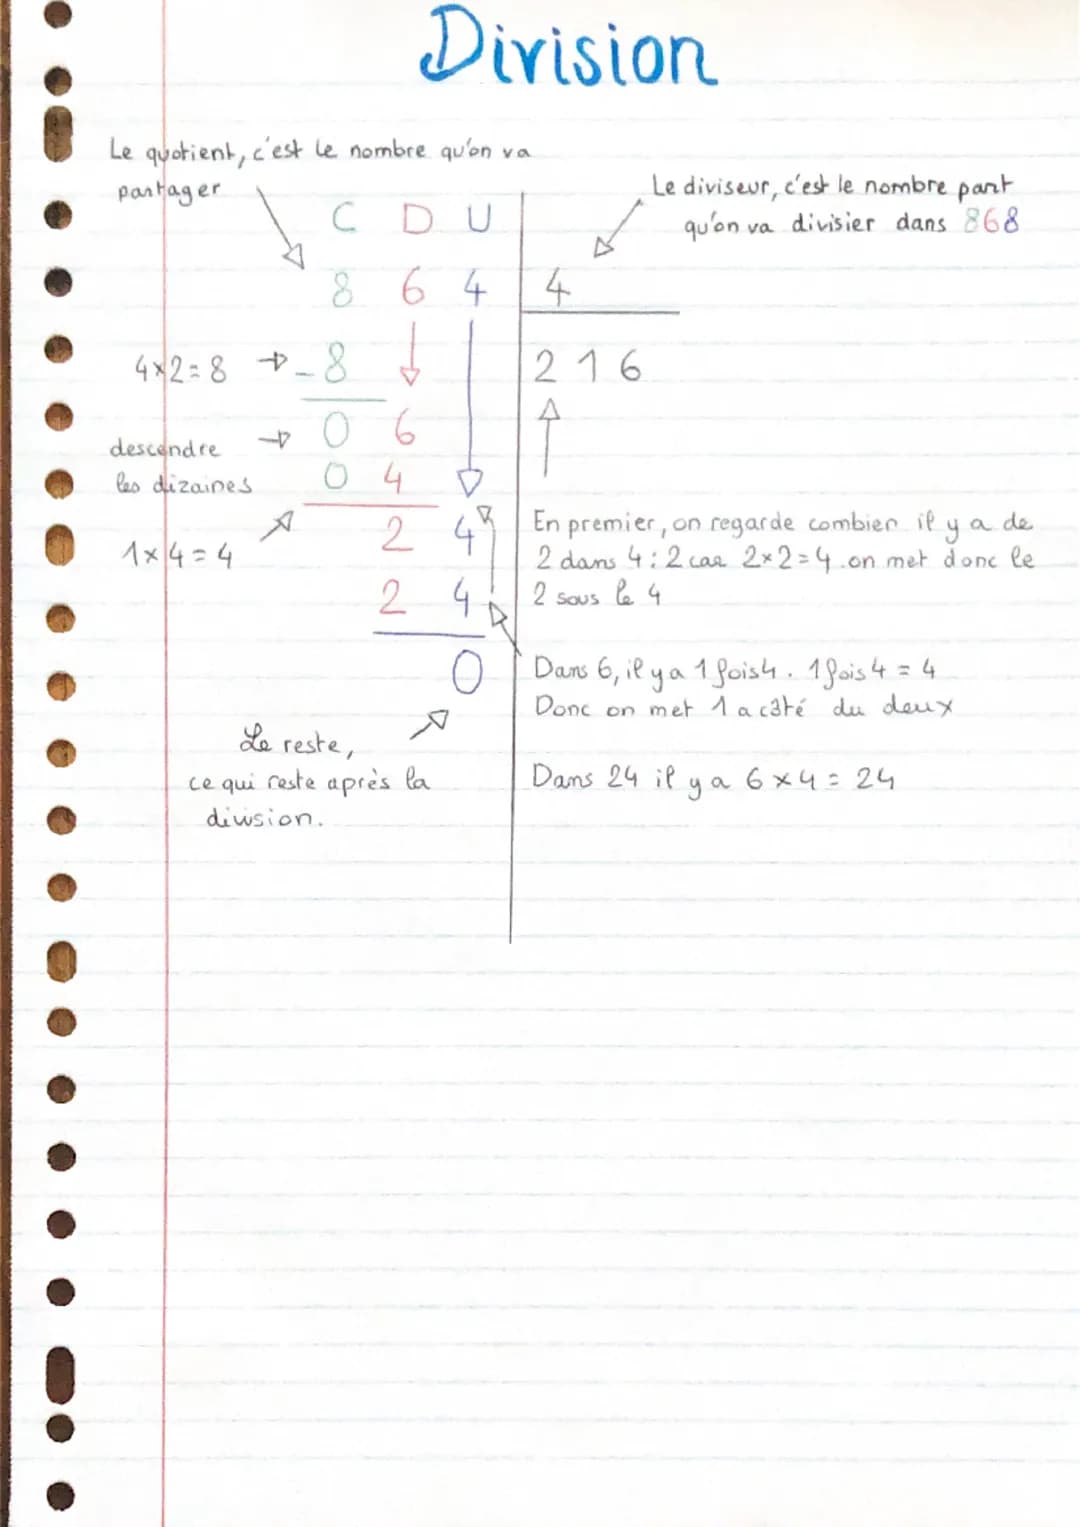 Division
Le quotient, c'est le nombre qu'on va
partager
Le diviseur, c'est le nombre part
qu'on va divisier dans 868
C D U
8 6 4 4
4×2=8 -8 2 1 6
descendre 0 6
les dizaines 0 4
1×4=4 2 4
2 4
0
En premier, on regarde combien il y a de
2 dans 4 : 2 car 2×2=4. on met donc le
2 sous le 4
Dans 6, il y a 1 fois 4. 1 fois 4 = 4
Donc on met 1 a côté du deux
Dans 24 il y a 6×4=24
Le reste,
ce qui reste après la
division.